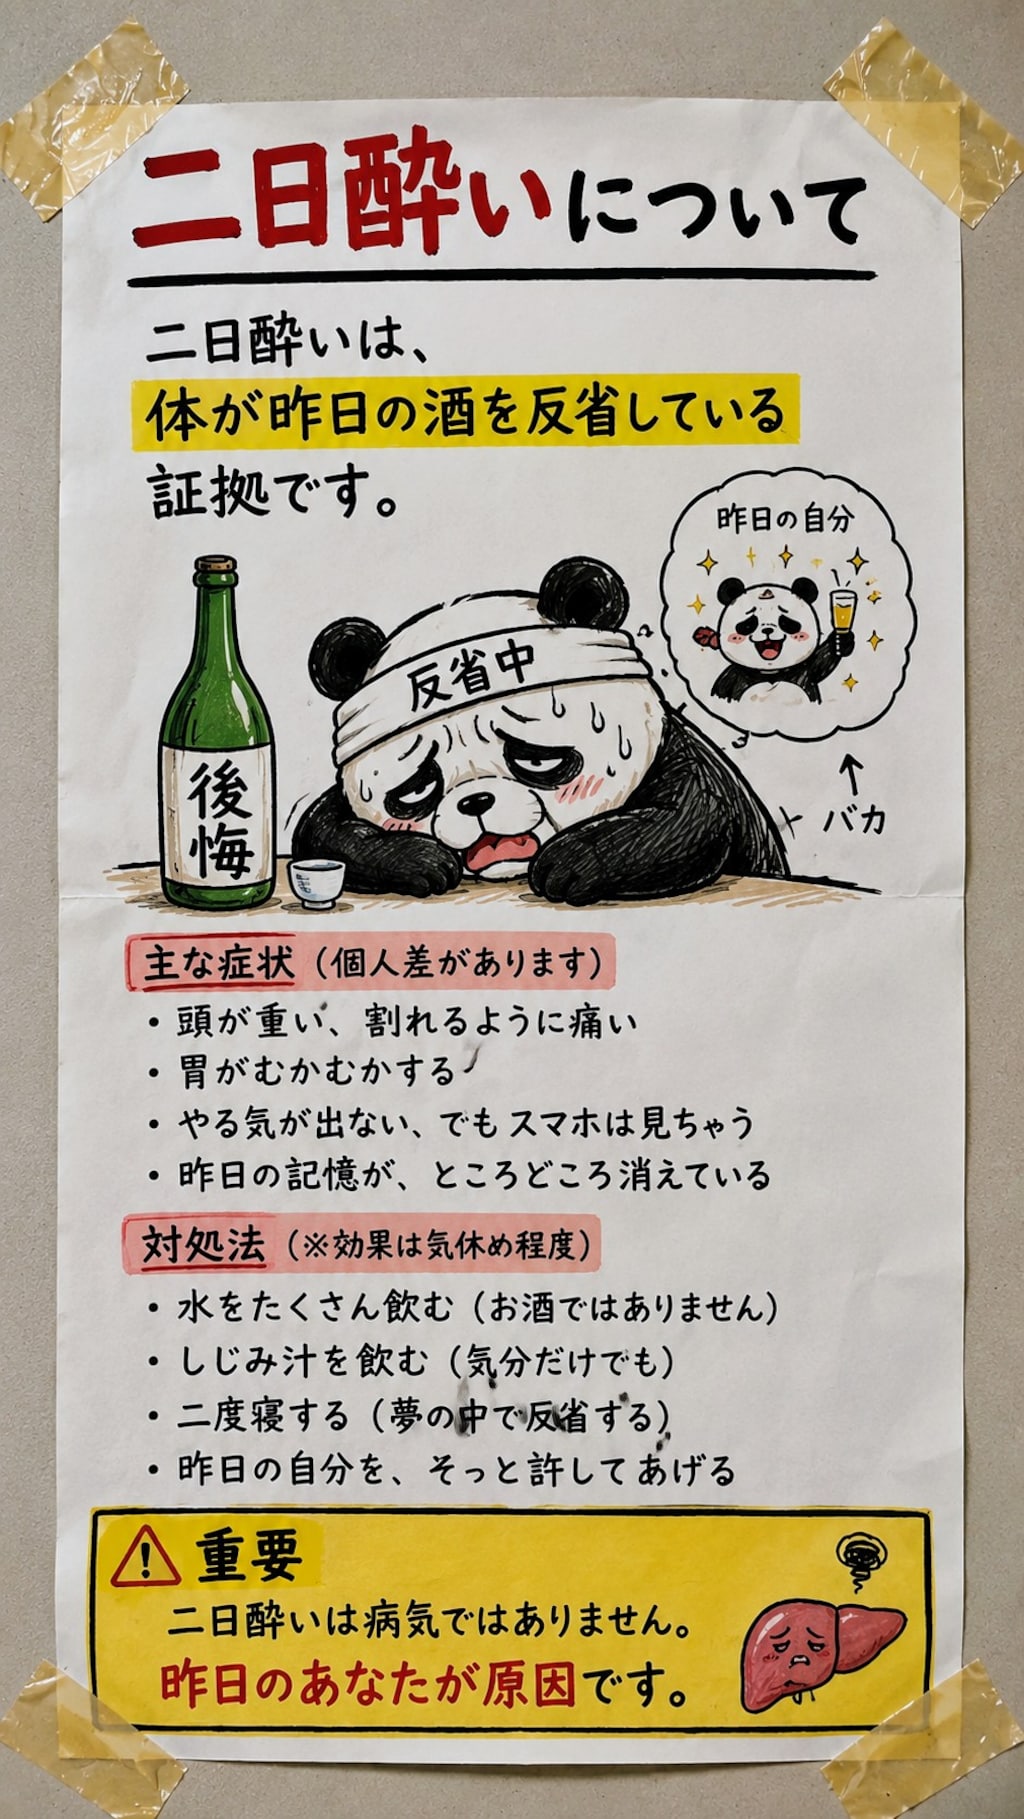 二日酔いについて
二日酔いは、
体が昨日の酒を反省している
証拠です。
昨日の自分
反省中
後悔
↑
バカ
主な症状（個人差があります）
・頭が重い、割れるように痛い
・胃がむかむかする
・やる気が出ない、でもスマホは見ちゃう
・昨日の記憶が、ところどころ消えている
対処法（※効果は気休め程度）
・水をたくさん飲む（お酒ではありません）
・しじみ汁を飲む（気分だけでも）
・二度寝する（夢の中で反省する）
・昨日の自分を、そっと許してあげる
重要
二日酔いは病気ではありません。
昨日のあなたが原因です。